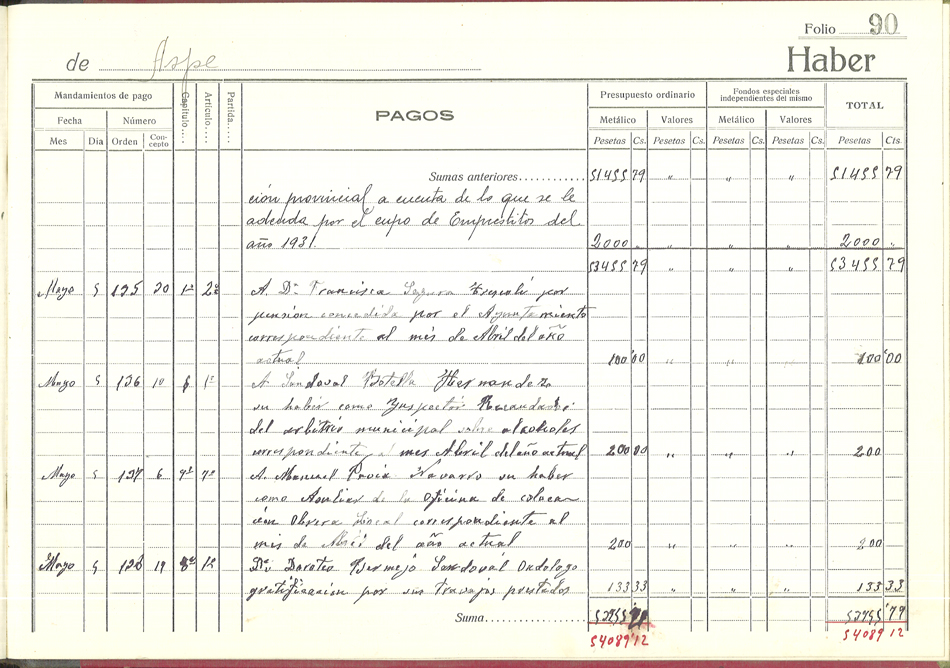 Folio 90
de Aspe
Haber
Mandamientos de pago
Fecha Número
Mes Dia Orden Concepto
Capítulo.... Artículo.... Partida.....
PAGOS
Presupuesto ordinario
Metálico Valores
Pesetas Cs. Pesetas Cs.
Fondos especiales
independientes del mismo
Metálico Valores
Pesetas Cs. Pesetas Cs.
TOTAL
Pesetas Cts.
Sumas anteriores............ 51455 79 " " " 51455 79
ción provincial a cuenta de lo que se le
adeuda por el cupo de Empréstitos del
año 1931. 2000 " " " " 2000 "
53455 79 " " " 53455 79
Mayo 5 135 20 1º 2º A Dª Francisca Segura por
pensión concedida por el Ayuntamiento
correspondiente al mes de Abril del año
actual 100'00 " " " 100'00
Mayo 5 136 10 1º A Sandoval Botella Hernandez
su haber como Yuspector
del arbitrio municipal sobre alcoholes
correspondiente a mes Abril del año actual 200 00 " " " 200
Mayo 5 137 6 7º 7º A Manuel Pavia Navarro su haber
como Auxliar de la oficina de colocac
ión Obrera Local correspondiente al
mes de Abril del año actual 200 " " " 200
Mayo 5 138 19 8º 12 Dn Doroteo Bermejo Sandoval Ondologo
gratificacion por sus trabajos prestados 133 33 " " " 133 33
Suma.................... 53755 53755'79
54089'12 54089 12